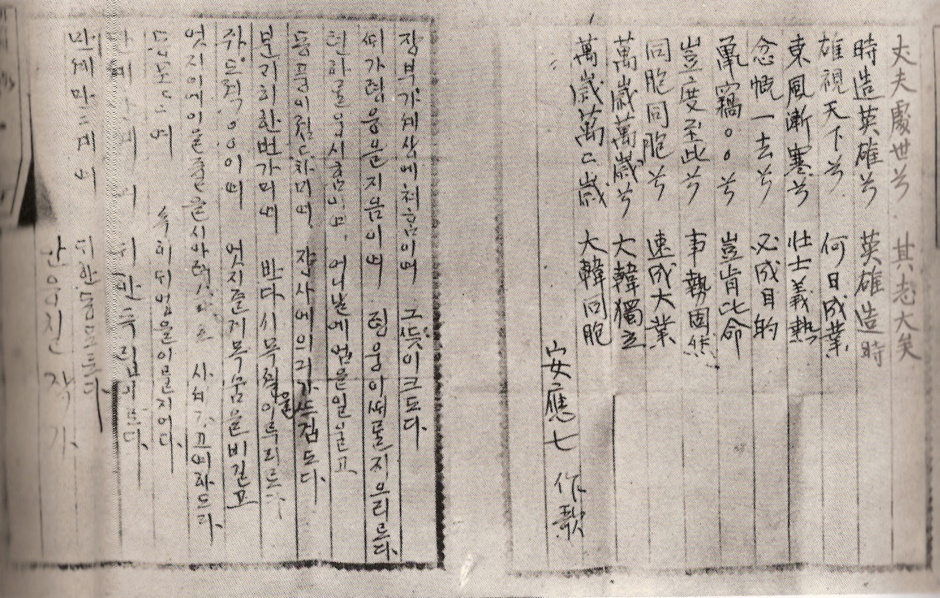 丈夫處世兮 其志大矣
時造英雄兮 英雄造時
雄視天下兮 何日成業
東風漸寒兮 壯士義熱
念慨一去兮 必成目的
鼠竊○○兮 豈肯比命
豈度至此兮 事勢固然
同胞同胞兮 速成大業
萬歲萬歲兮 大韓獨立
萬歲萬々歲 大韓同胞
安應七 作歌
쟝부가세상에쳐함이여 그뜻이크도다.
때가령웅을지음이여 령웅이때를지으리로다.
텬하를웅시함이여 어나날에업을일울고
동풍이졈드차미여 쟝사에의긔가드겁도다.
분개히한번가미여 반다시목젹을이루리로다.
쥐도젹○○이여 엇지즐겨목숨을비길고
엇지이에이를줄을시아려스리오 사셰가고여하도다.
동포동포여 속히대업을이룰지어다.
만셰만셰여 대한독립이로다.
만셰만만셰여 대한동포로다
안응칠 작가